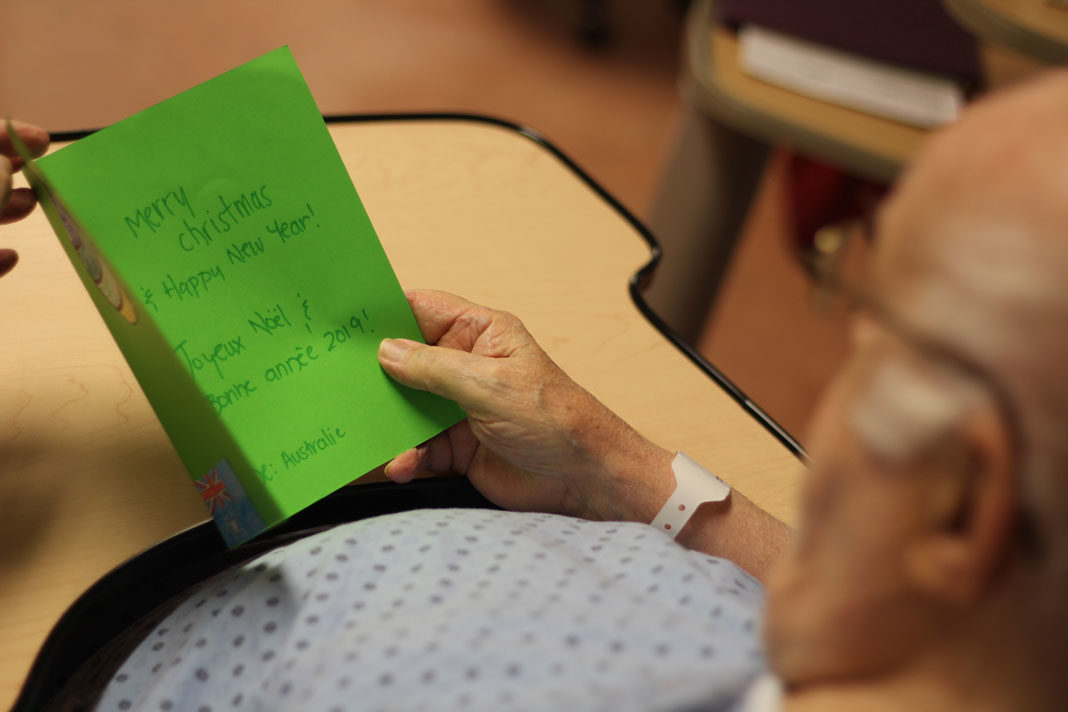 Merry
christmas
& Happy New Year!
Joyeux Noël &
Bonne année 2019!
De: Australie